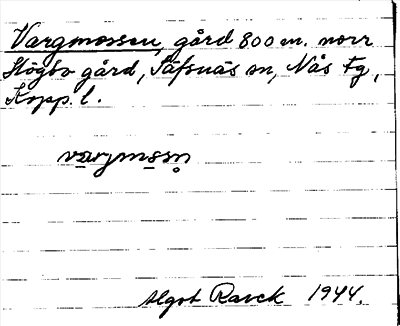 Vargmossen, gård 800 m. norr
Högbo gård, Säfsnäs sn, Nås Fg,
Kopp. l.
vargmosn̥
Algot Ravck 1944.